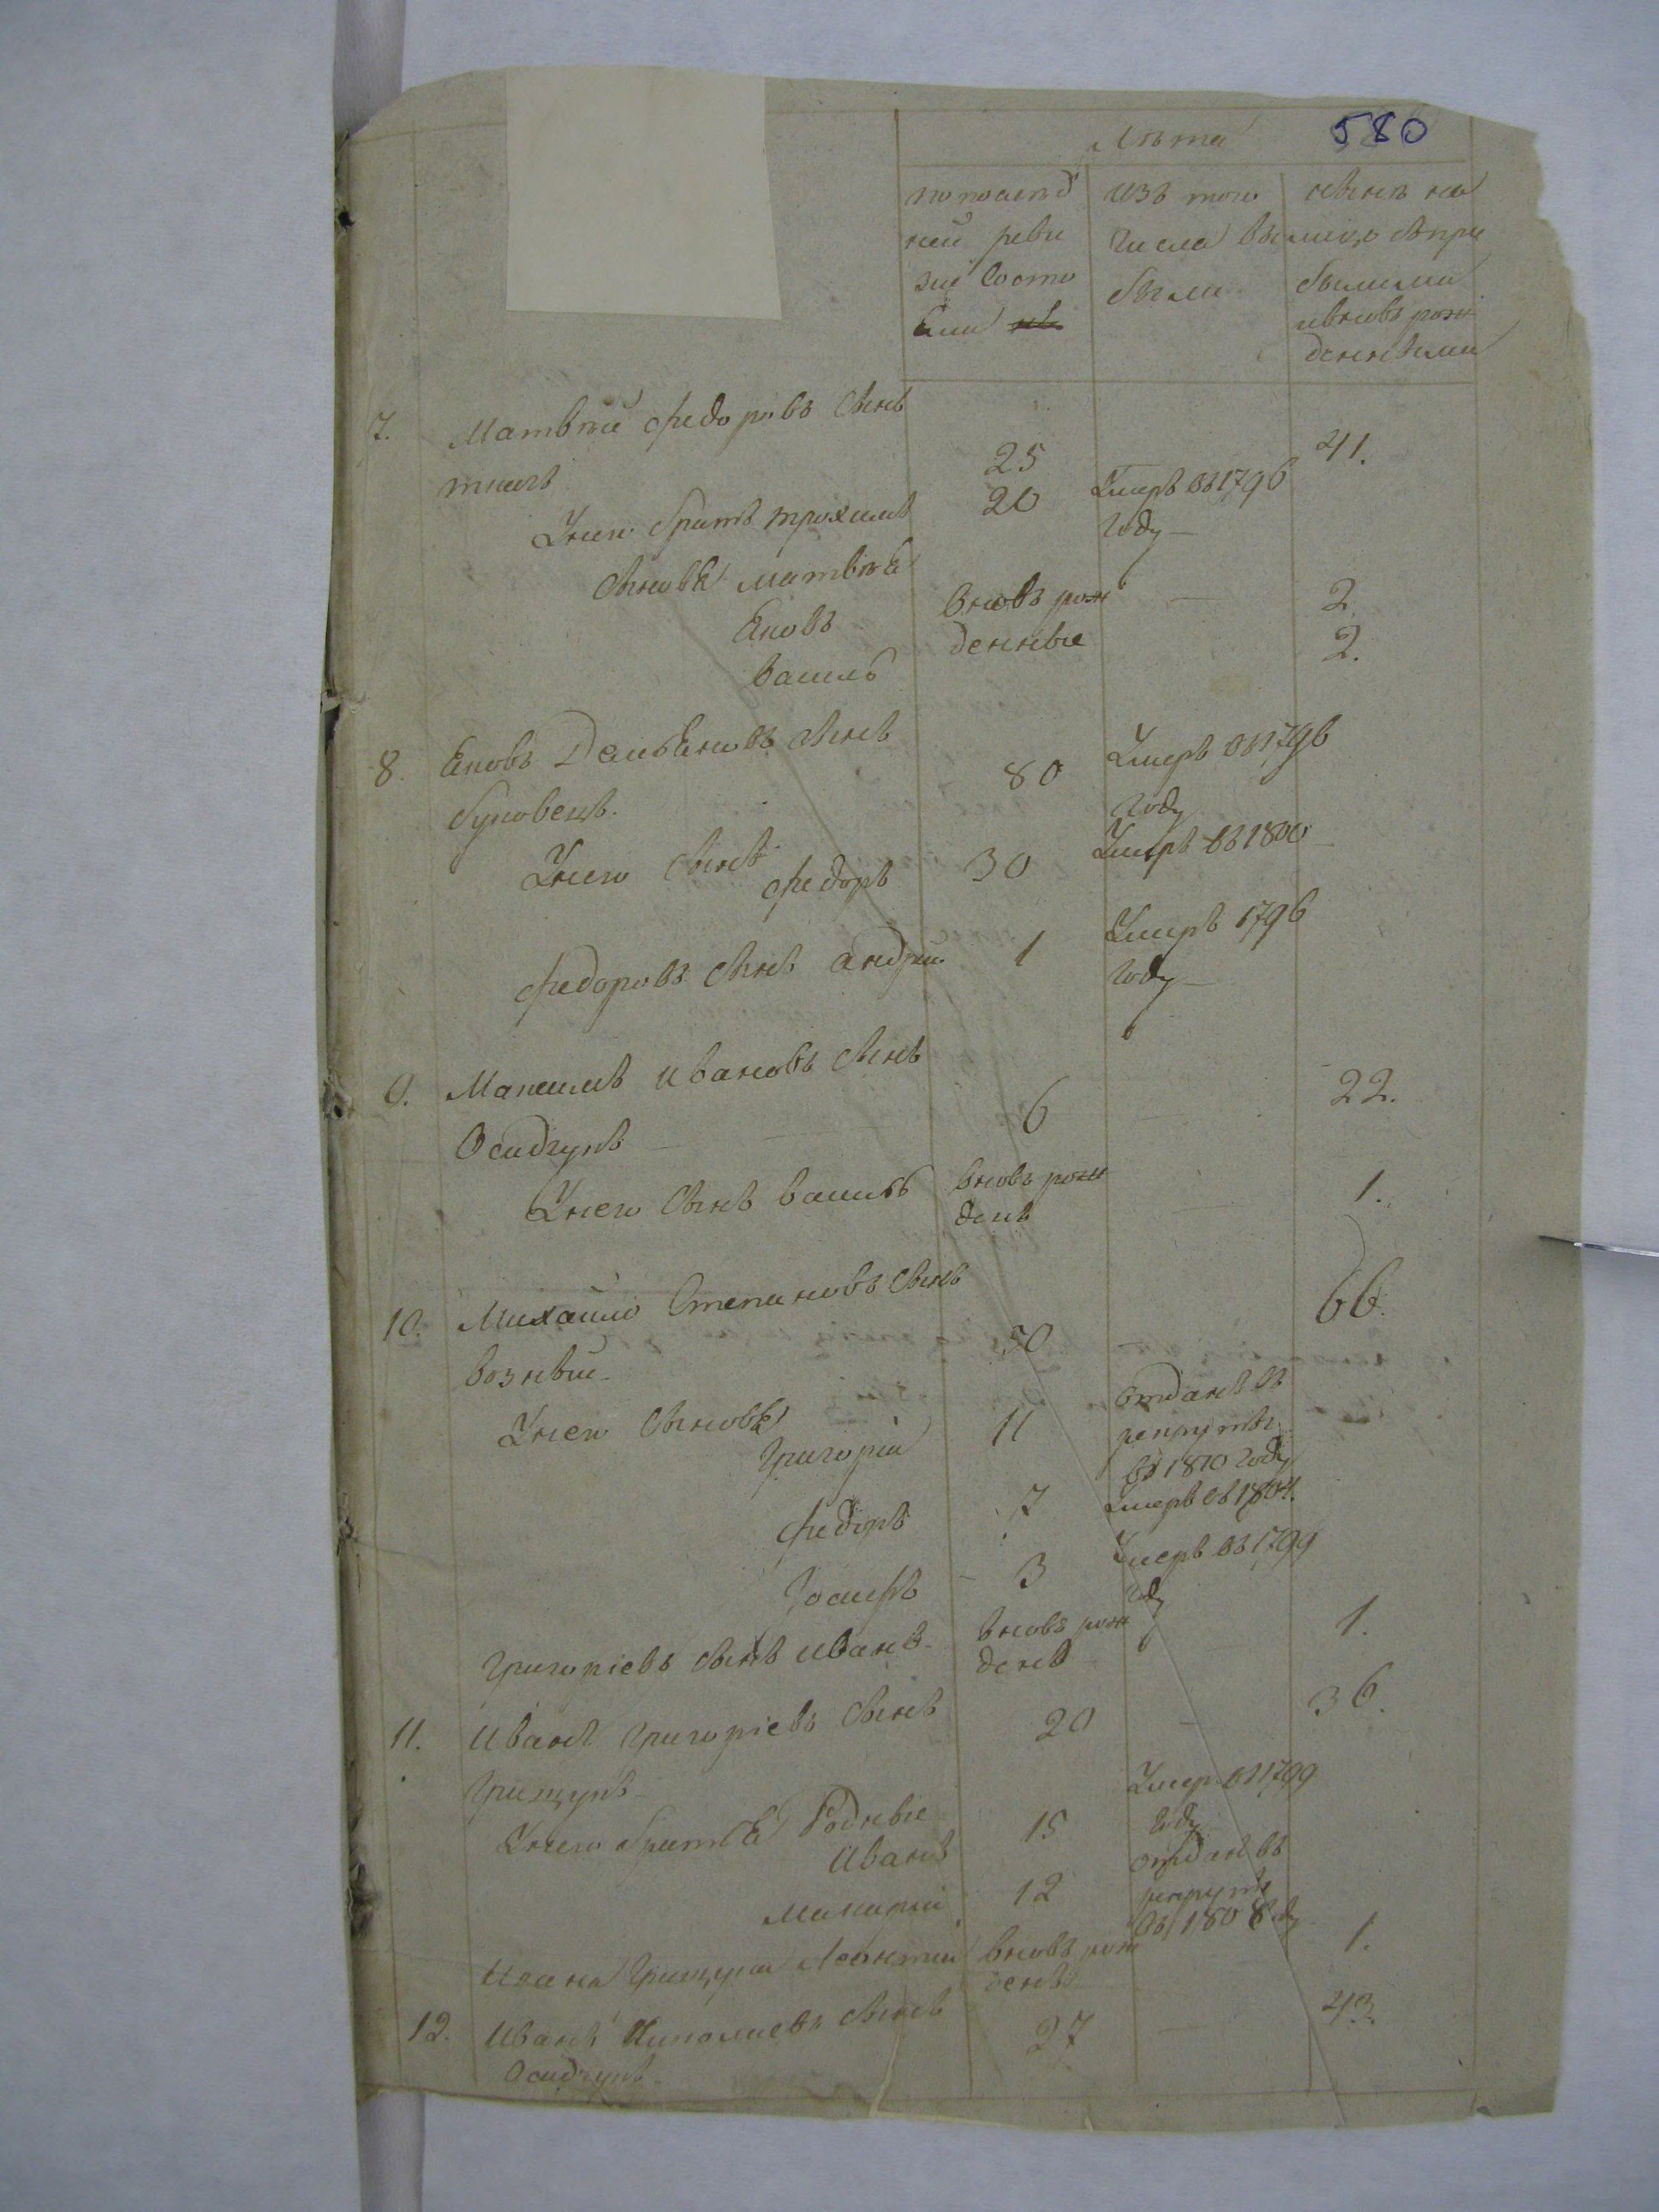 580
Лѣта
по послѣд
ней реви
зіи состо
яли
изъ того
числа вы
были
нынѣ на
лицо съпри
былыми
ивновь рож
денными
7. Матвѣй Федоровъ сынъ
25 41.
Унего братъ трохимъ 20 Умеръ въ 1796
году
сыновья матвѣя
Яковъ вновь рож 2
василь денные 2.
8. Яковъ Демьяновъ сынъ
80 Умеръ въ 1796
году
буковецъ.
Унего сынъ
федоръ 30 Умеръ въ 1800
федоровъ сынъ андрей 1 Умеръ 1796
году
9. Максимъ Ивановъ сынъ
6 22.
Осидчукъ
Унего сынъ василь вновь рож 1.
денъ
10. Михайло Степановъ сынъ
50 66.
возный
Унего сыновья
Григорій 11 отданъ въ
рекруты
въ 1810 году
федоръ 7 Умеръ въ 1804.
Іосифъ 3 Умеръ въ 1799
году
Григоріевъ сынъ иванъ вновь рож 1.
денъ
11. Иванъ Григоріевъ сынъ 20 36.
Грищукъ
Унего братья Родные
Иванъ 15 Умер въ 1799
году
макарій 12 отданъ въ
рекруты
въ 1808 году
Ивана Грищука Леонтій вновь рож 1.
денъ
12. Иванъ Николаевъ сынъ 27 43.
Осидчукъ